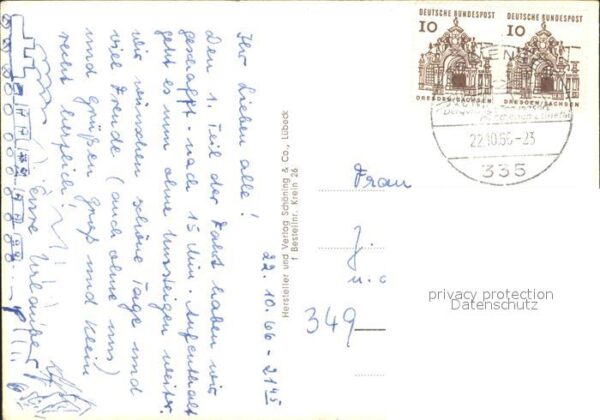 22.10.66 - 21⁴⁵
Ihr Lieben alle!
Den 1. Teil der Fahrt haben wir
geschafft - nach 15 Min. Aufenthalt
geht es nun ohne Umsteigen weiter.
Wir wünschen schöne Tage und
viel Freude (auch ohne uns)
und grüßen Groß und Klein
recht herzlich!
Eure Urlauber
Hersteller und Verlag Schöning & Co., Lübeck
† Bestellnr. Krein 26
DEUTSCHE BUNDESPOST
10
DRESDEN/SACHSEN
DEUTSCHE BUNDESPOST
10
DRESDEN/SACHSEN
22.10.66-23
335
Frau
J.
u.
349
privacy protection
Datenschutz